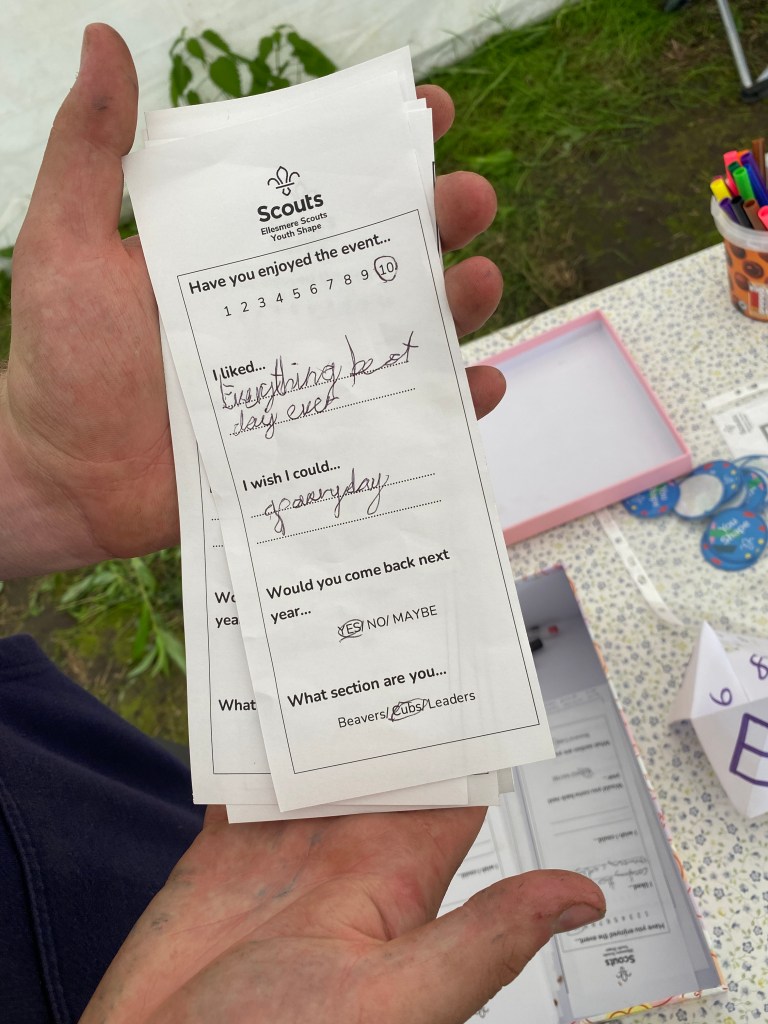 Scouts
Ellesmere Scouts
Youth Shape
Have you enjoyed the event...
1 2 3 4 5 6 7 8 9 10
I liked...
Everything best
day ever
I wish I could...
Would you come back next
year...
YES/ NO/ MAYBE
What section are you...
Beavers/Cubs/Leaders
Wo
yea
What
6
8
Have you enjoyed the event...
I liked...
I wish I could...
Scouts